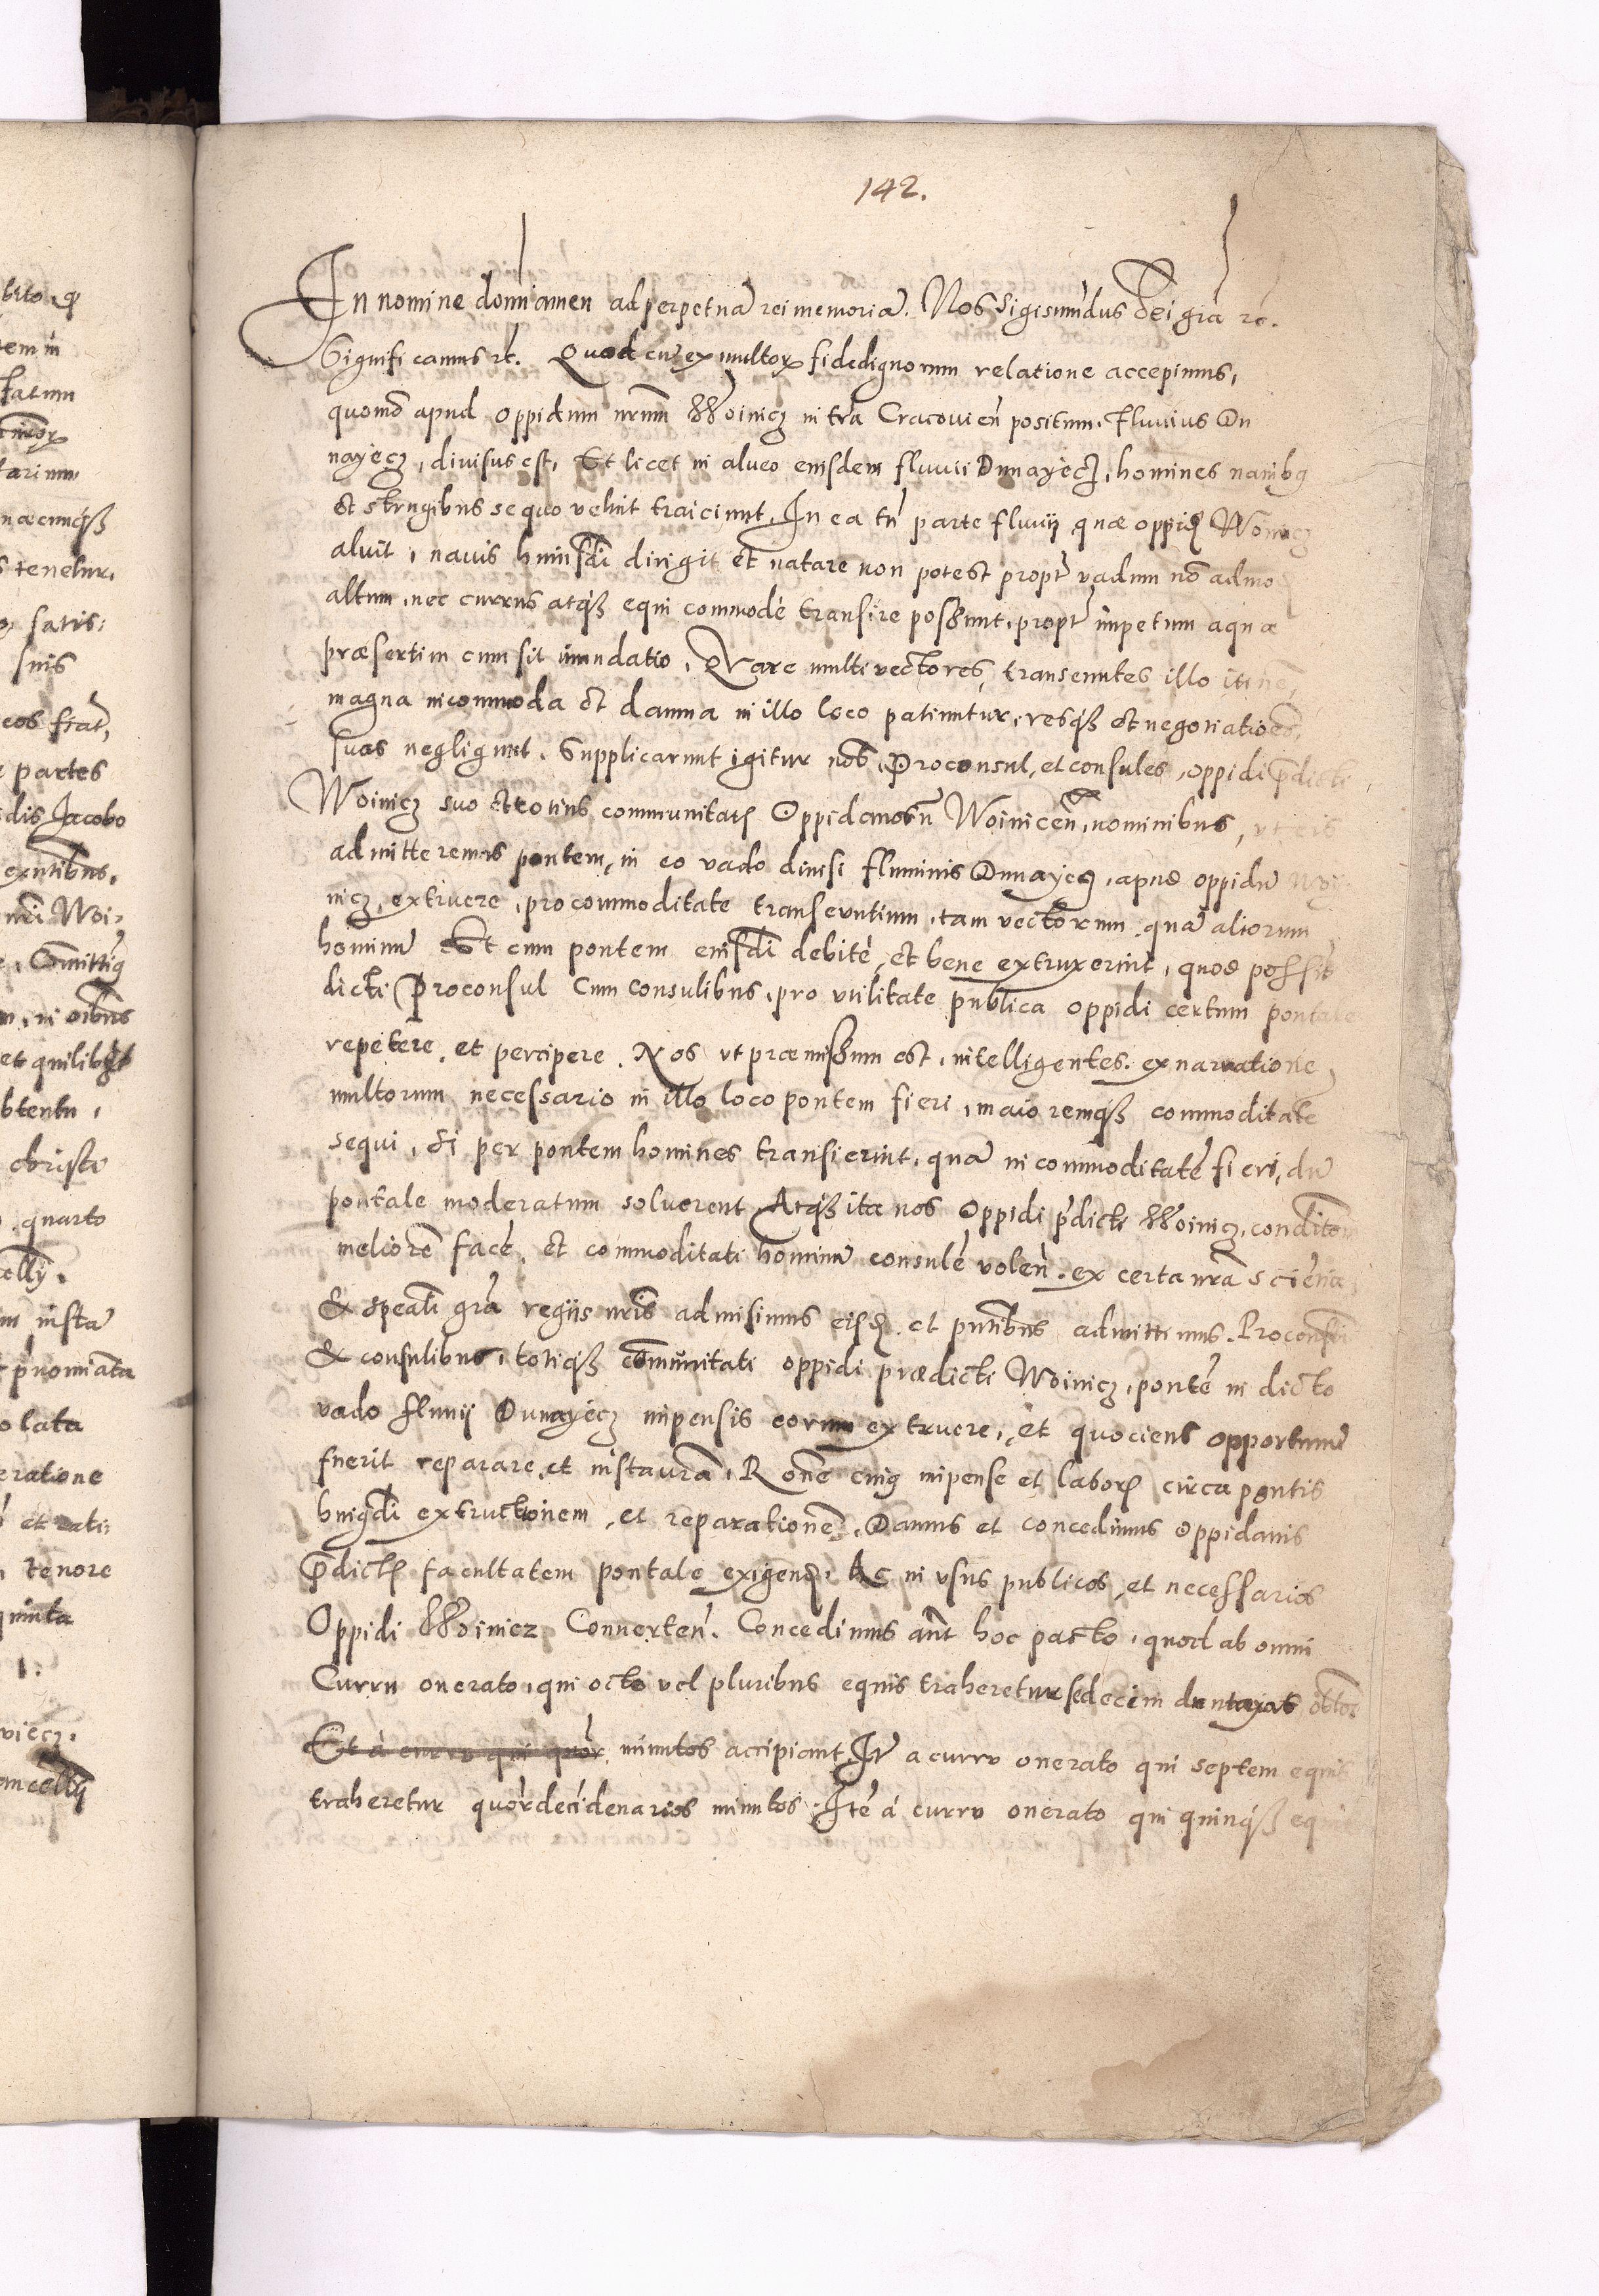 142.
In nomine domi amen ad perpetuā rei memoriā. Nos Sigismūdus Dei grā rc.
Significamus rc. Quod cū ex multor fidedignorum relatione accepimus,
quomō apud oppidum nrūm Woinicz in trā Cracouieñ positum. Fluuius Du
nayecz, diuisus est, Et licet in alueo eiusdem fluuii Dunayecz, homines nauibq
et strugibus se quo velint traiciunt, In ea tñ parte fluuij quæ oppid Woinicz
aluit, nauis huiusdi dirigi et natare non potest propt vadum nō admo
altum, nec currus atq̃ß equi commodè transire possunt, propt impetum aquæ
præsertim cum sit inundatio. Quare multi vectores, transeuntes illo itinē,
magna incommoda et damna in illo loco patiuntur, resq̃ß et negotiationes,
suas negligunt. Supplicarunt igitur nob, Proconsul, et consules, oppidi p̄dicti
Woinicz suo et totius communitat Oppidanor̄ Woiniceñ, nominibus, vt eis
admitteremus pontem, in eo vado diuisi fluminis Dunayecz, apud oppidū Woi
nicz, extruere, pro commoditate transeuntium, tam vectorum quā aliorum
hominū Et cum pontem eiusdi debitè, et bene extruxerint, quod possit
dicti Proconsul Cum consulibus, pro vtilitate publica oppidi certum pontale
repetere, et percipere. Nos vt præmissum est, intelligentes. ex narratione
multorum necessario in illo loco pontem fieri, maioremq̃ß commoditatē
sequi, si per pontem homines transierint, quā incommoditatē fieri, dū
pontale moderatum soluerent Atq̃ß ita nos Oppidi p̄dicti Woinicz, conditōn
meliorē facē, et commoditati hominū consulē voleñ. ex certa nrā scientia
& speāli grā regiis nrīs admisimus eisd et pn̄tibus admittimus. Proconsuli
& consulibus, totiq̃ß com̄unitati oppidi prædicti Woinicz, pontē in dicto
vado fluuij Dunayecz impensis eorum extruere, et quociens opportunū
fuerit reparare et instaurā, Rōne cuiq impense et labor circa pontis
huiqdi extructionem, et reparationē, Damus et concedimus oppidanis
p̄dict facultatem pontale exigend. Ac in vsus publicos et necessarios
Oppidi Woinicz Conuerteñ. Concedimus aūt hoc pacto, quod ab omni
Curru onerato, qui octo vel pluribus equis traheretur sedecim
Et à curru qui quōr minutos accipiant, Itē a curru onerato qui septem equis
traheretur quōrdeci denarios minutos Itē á curru onerato qui quinq̃ß equis